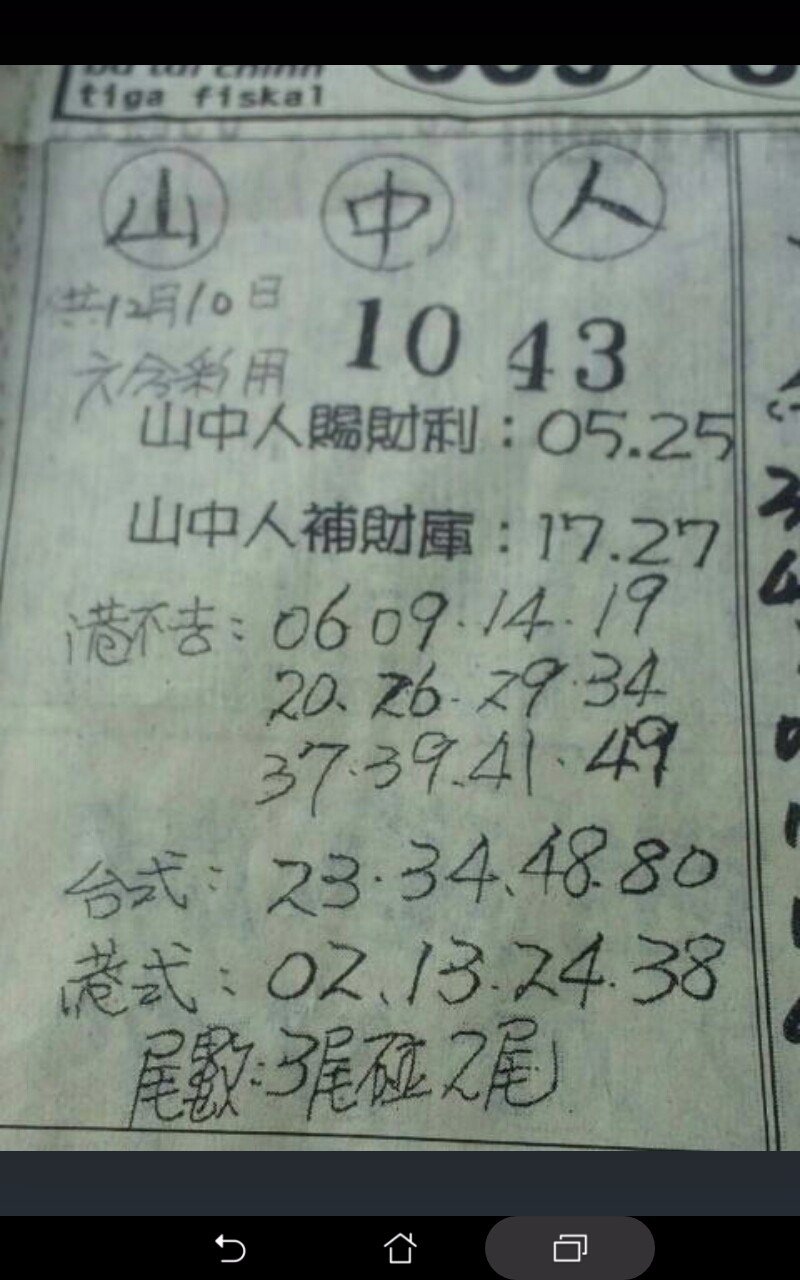 tiga fiskal
山 中 人
共12月10日
六合彩用
10 43
山中人賜財利：05.25
山中人補財庫：17.27
港不吉：06 09.14.19
20、26.29.34
37.39.41.49
台式：23.34、48.80
港式：02、13.24.38
尾數：3尾碰2尾